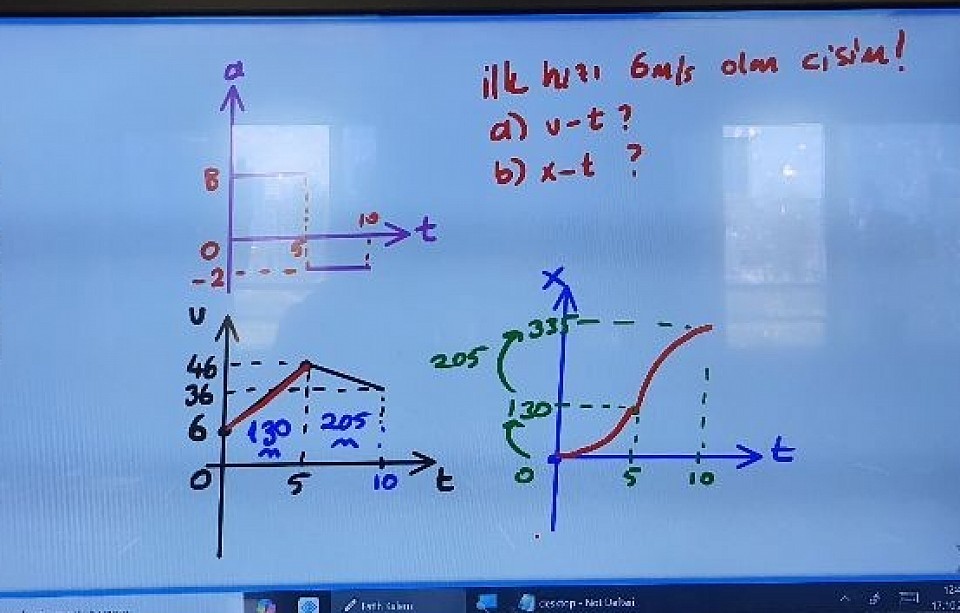 ilk hızı 6m/s olan cisim!
a) v-t?
b) x-t ?
a
8
0
5
10
t
-2
v
46
36
6
130
m
205
m
0
5
10
t
x
335
205
130
0
5
10
t